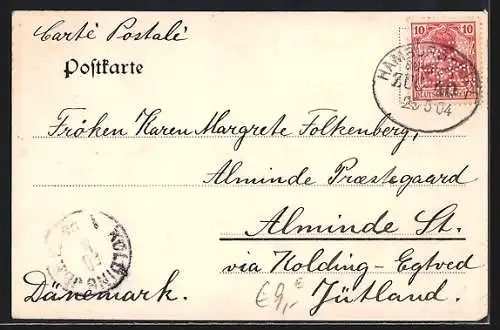 Carte Postale
Postkarte
10 10
HAMBURG
ZUG
5 04
Fröken Karen Margrete Folkenberg,
Alminde Præstegaard
Alminde St.
via Kolding-Egtved
Dänemark. Jütland.
KOLDING
€9,-